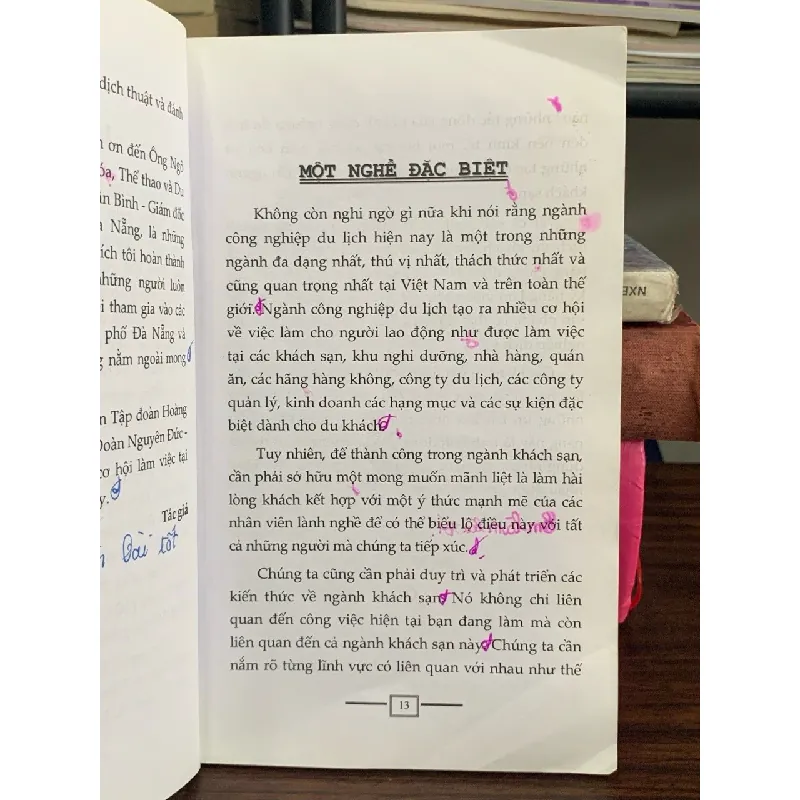 dịch thuật và đánh
ơn đến Ông Ngô
óa, Thể thao và Du
Bình - Giám đốc
Nẵng, là những
tôi hoàn thành
những người luôn
tham gia vào các
phố Đà Nẵng và
nằm ngoài mong
Tập đoàn Hoàng
Đoàn Nguyên Đức-
cơ hội làm việc tại
Tác giả
Bài tốt
MỘT NGHỀ ĐẶC BIỆT
Không còn nghi ngờ gì nữa khi nói rằng ngành
công nghiệp du lịch hiện nay là một trong những
ngành đa dạng nhất, thú vị nhất, thách thức nhất và
cũng quan trọng nhất tại Việt Nam và trên toàn thế
giới. Ngành công nghiệp du lịch tạo ra nhiều cơ hội
về việc làm cho người lao động như được làm việc
tại các khách sạn, khu nghỉ dưỡng, nhà hàng, quán
ăn, các hãng hàng không, công ty du lịch, các công ty
quản lý, kinh doanh các hạng mục và các sự kiện đặc
biệt dành cho du khách.
Tuy nhiên, để thành công trong ngành khách sạn,
cần phải sở hữu một mong muốn mãnh liệt là làm hài
lòng khách kết hợp với một ý thức mạnh mẽ của các
nhân viên lành nghề để có thể biểu lộ điều này với tất
cả những người mà chúng ta tiếp xúc.
Chúng ta cũng cần phải duy trì và phát triển các
kiến thức về ngành khách sạn. Nó không chỉ liên
quan đến công việc hiện tại bạn đang làm mà còn
liên quan đến cả ngành khách sạn này. Chúng ta cần
nắm rõ từng lĩnh vực có liên quan với nhau như thế
13
NXB